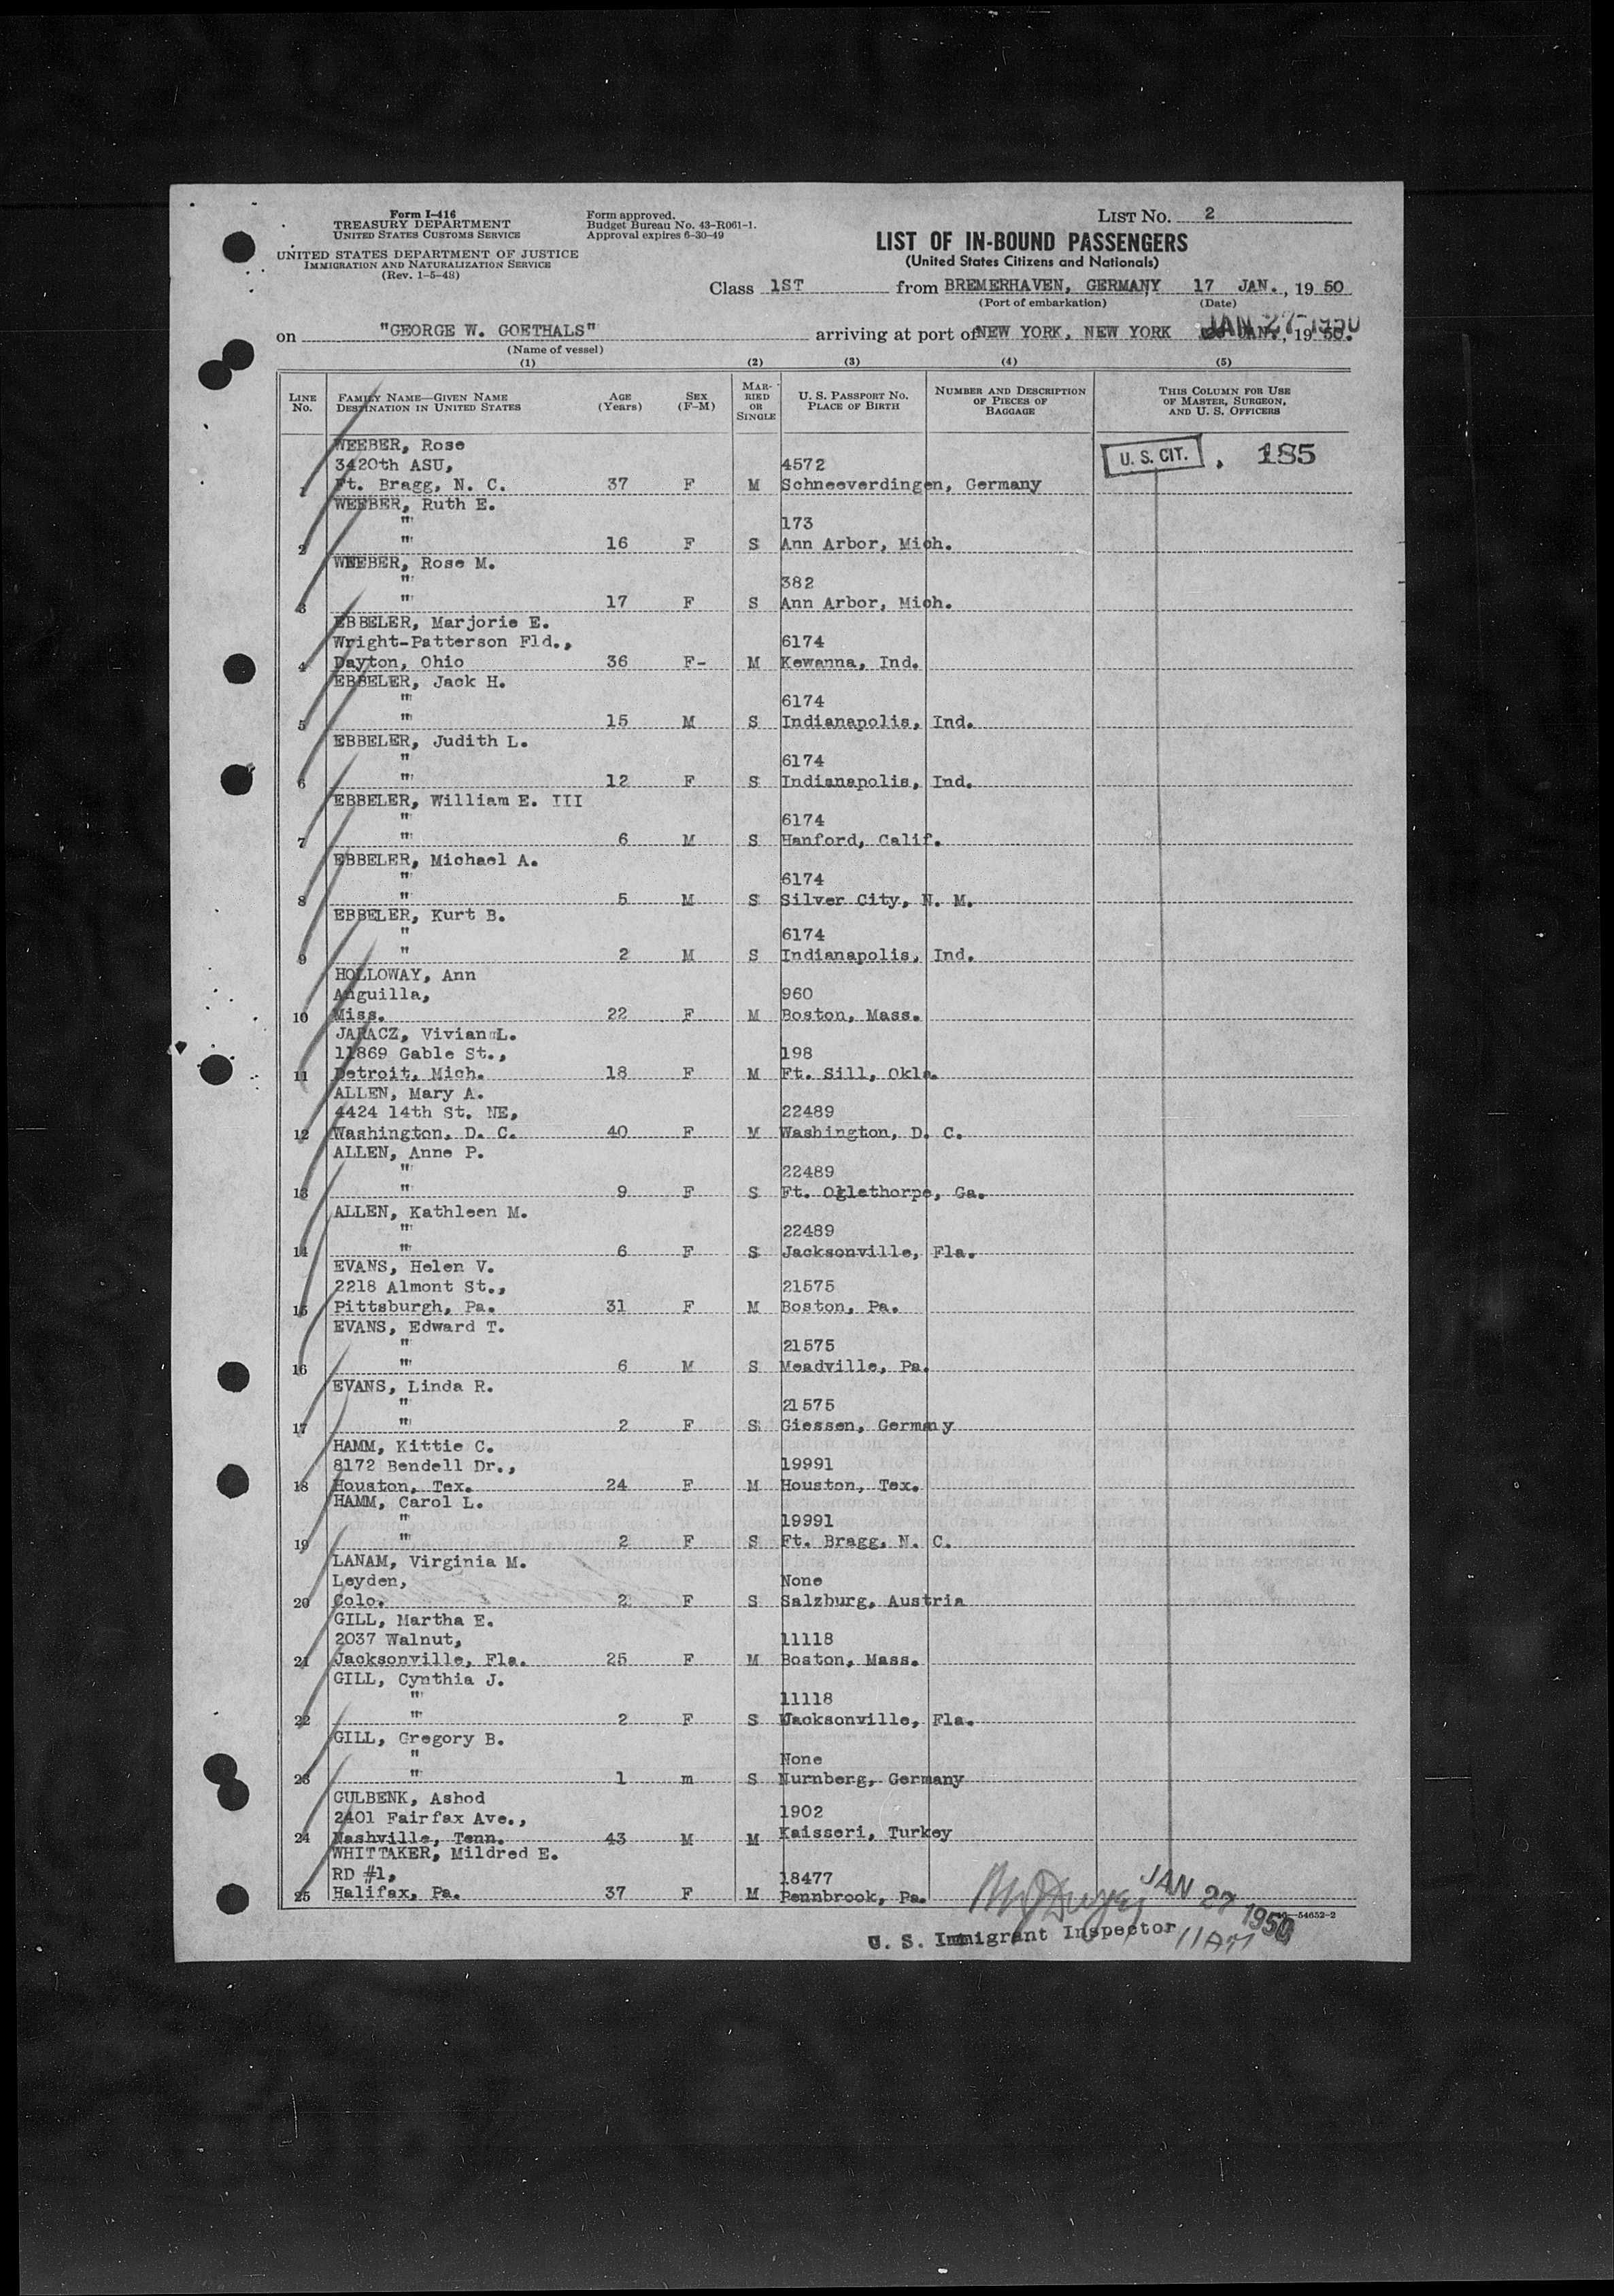 Form I-416
TREASURY DEPARTMENT
UNITED STATES CUSTOMS SERVICE
UNITED STATES DEPARTMENT OF JUSTICE
IMMIGRATION AND NATURALIZATION SERVICE
(Rev. 1-5-48)
Form approved.
Budget Bureau No. 43-R061-1.
Approval expires 6-30-49
LIST NO. 2
LIST OF IN-BOUND PASSENGERS
(United States Citizens and Nationals)
Class 1ST from BREMERHAVEN, GERMANY 17 JAN., 19 50
(Port of embarkation) (Date)
on "GEORGE W. GOETHALS" arriving at port of NEW YORK, NEW YORK JAN 27 1950 JAN., 19 50.
(Name of vessel)
(1) (2) (3) (4) (5)
LINE NO. FAMILY NAME—GIVEN NAME DESTINATION IN UNITED STATES AGE (Years) SEX (F-M) MARRIED OR SINGLE U. S. PASSPORT NO. PLACE OF BIRTH NUMBER AND DESCRIPTION OF PIECES OF BAGGAGE THIS COLUMN FOR USE OF MASTER, SURGEON, AND U. S. OFFICERS
WEEBER, Rose
3420th ASU, 4572 U. S. CIT. 185
1 Ft. Bragg, N. C. 37 F M Schneeverdingen, Germany
WEEBER, Ruth E.
" 173
2 " 16 F S Ann Arbor, Mich.
WEEBER, Rose M.
" 382
3 " 17 F S Ann Arbor, Mich.
EBBELER, Marjorie E.
Wright-Patterson Fld., 6174
4 Dayton, Ohio 36 F- M Kewanna, Ind.
EBBELER, Jack H.
" 6174
5 " 15 M S Indianapolis, Ind.
EBBELER, Judith L.
" 6174
6 " 12 F S Indianapolis, Ind.
EBBELER, William E. III
" 6174
7 " 6 M S Hanford, Calif.
EBBELER, Michael A.
" 6174
8 " 5 M S Silver City, N. M.
EBBELER, Kurt B.
" 6174
9 " 2 M S Indianapolis, Ind.
HOLLOWAY, Ann
Anguilla, 960
10 Miss. 22 F M Boston, Mass.
JARACZ, Vivian L.
11869 Gable St., 198
11 Detroit, Mich. 18 F M Ft. Sill, Okla.
ALLEN, Mary A.
4424 14th St. NE, 22489
12 Washington, D. C. 40 F M Washington, D. C.
ALLEN, Anne P.
" 22489
13 " 9 F S Ft. Oglethorpe, Ga.
ALLEN, Kathleen M.
" 22489
14 " 6 F S Jacksonville, Fla.
EVANS, Helen V.
2218 Almont St., 21575
15 Pittsburgh, Pa. 31 F M Boston, Pa.
EVANS, Edward T.
" 21575
16 " 6 M S Meadville, Pa.
EVANS, Linda R.
" 21575
17 " 2 F S Giessen, Germany
HAMM, Kittie C.
8172 Bendell Dr., 19991
18 Houston, Tex. 24 F M Houston, Tex.
HAMM, Carol L.
" 19991
19 " 2 F S Ft. Bragg, N. C.
LANAM, Virginia M.
Leyden, None
20 Colo. 2 F S Salzburg, Austria
GILL, Martha E.
2037 Walnut, 11118
21 Jacksonville, Fla. 25 F M Boston, Mass.
GILL, Cynthia J.
" 11118
22 " 2 F S Jacksonville, Fla.
GILL, Gregory B.
" None
23 " 1 m S Nurnberg, Germany
GULBENK, Ashod
2401 Fairfax Ave., 1902
24 Nashville, Tenn. 43 M M Kaisseri, Turkey
WHITTAKER, Mildred E.
RD #1, 18477
25 Halifax, Pa. 37 F M Pennbrook, Pa.
JAN 27 1950
16—54652-2
U. S. Immigrant Inspector 11AM